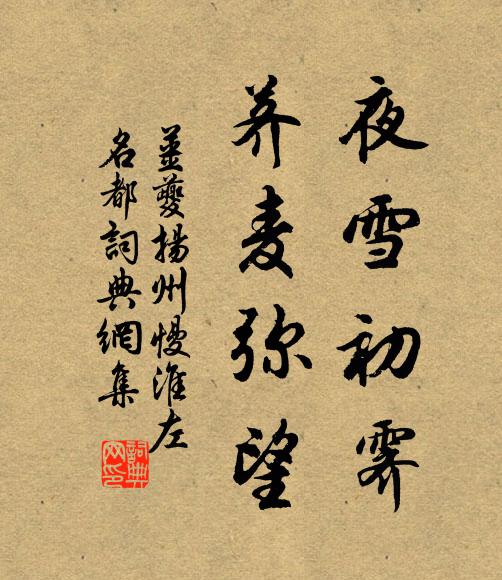 夜雪初霁
荠麦弥望
姜夔扬州慢淮左
名都词典網集
詞典網印